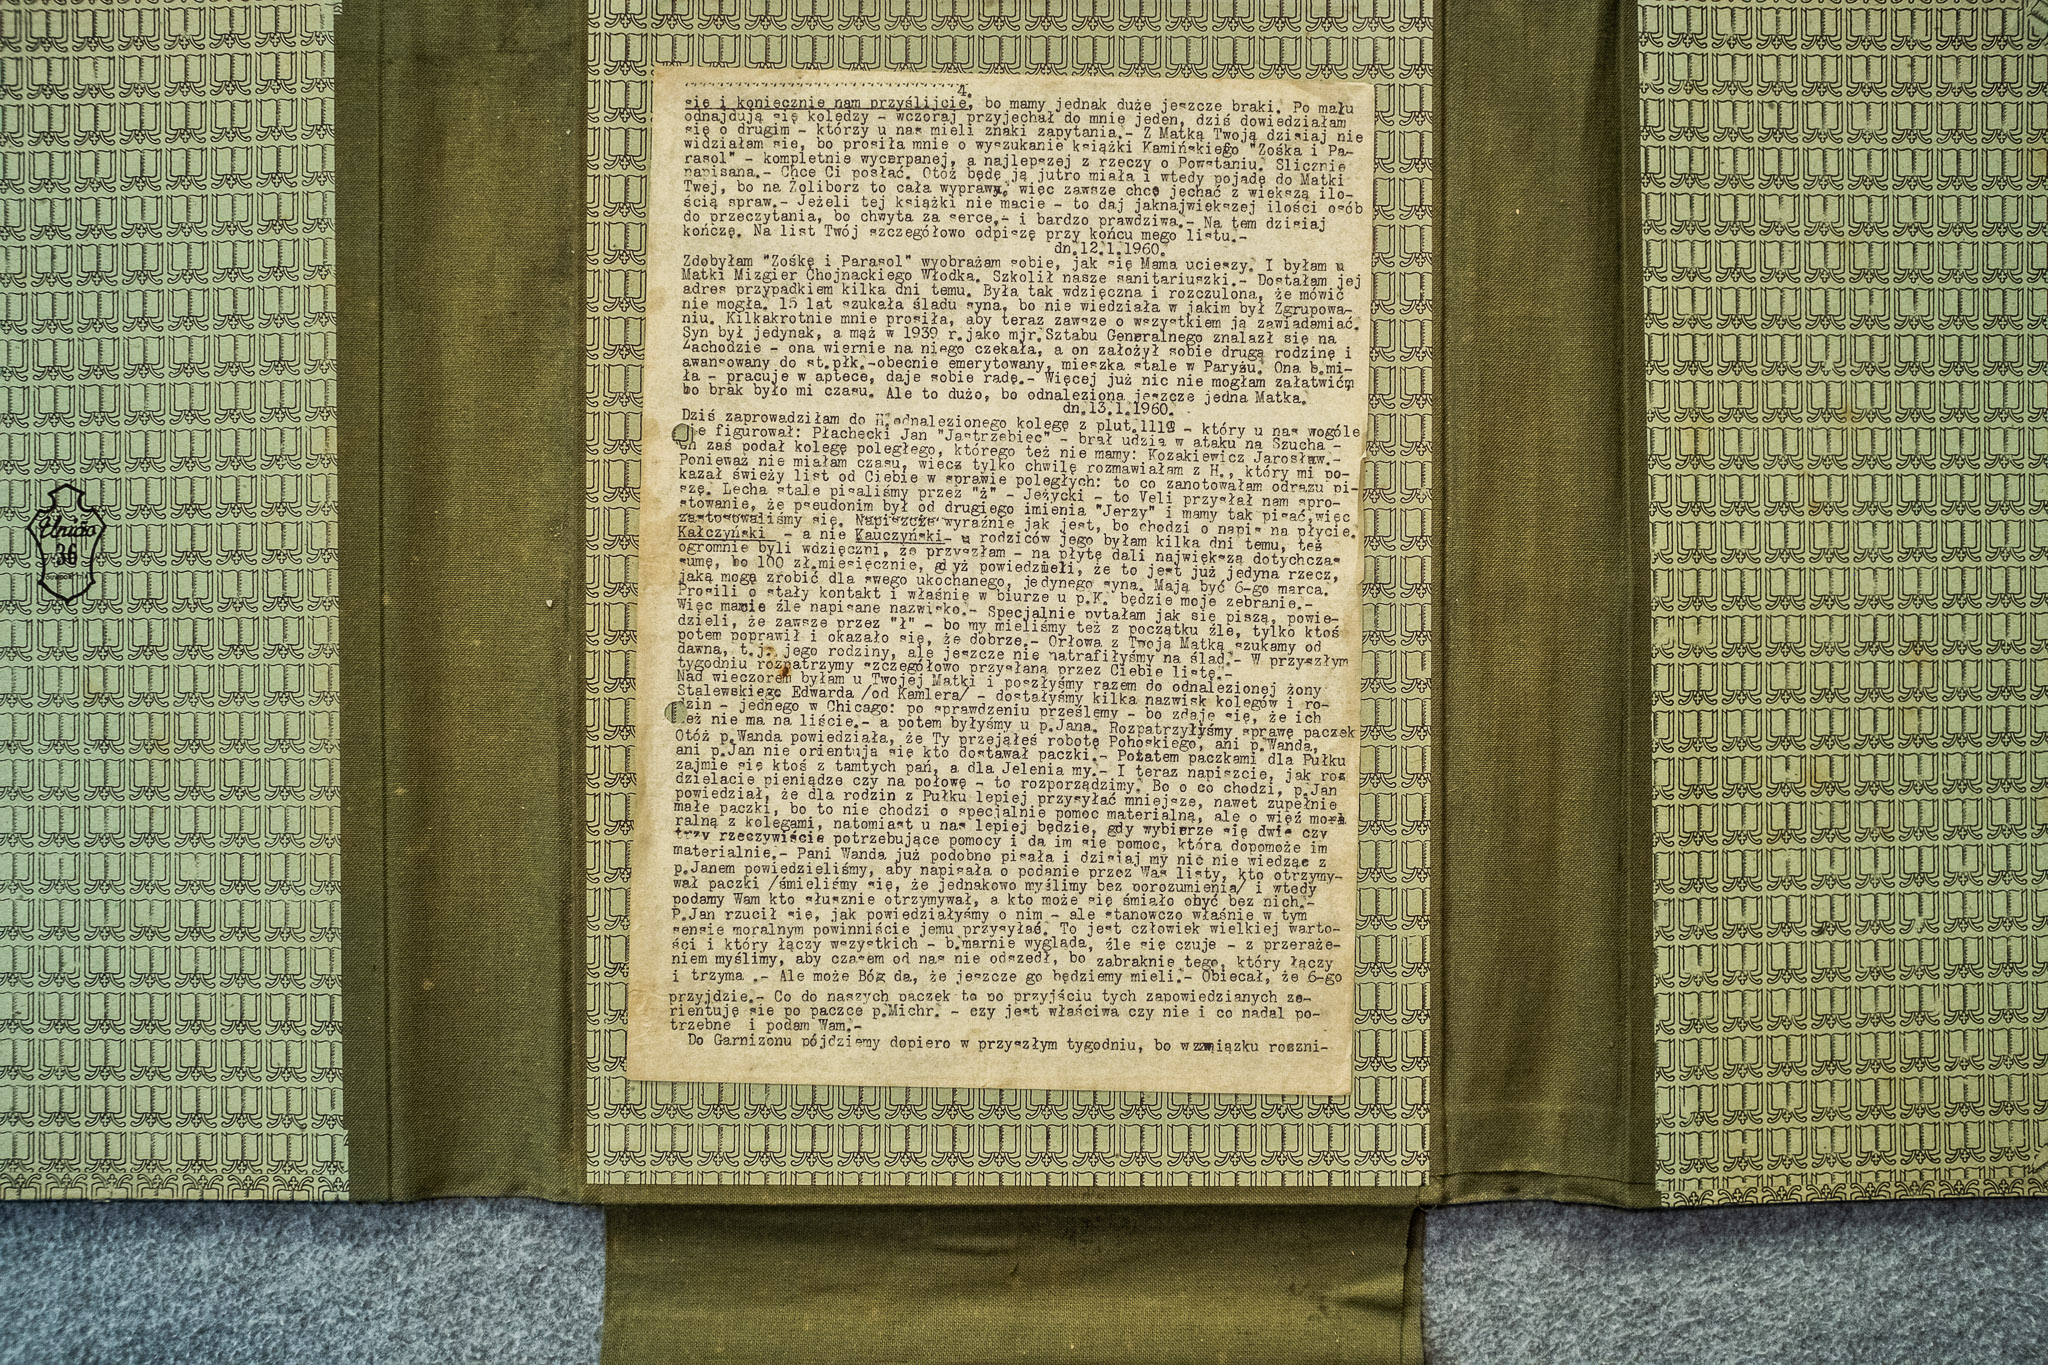 4.
się i koniecznie nam przyślijcie, bo mamy jednak duże jeszcze braki. Po mału
odnajdują się koledzy - wczoraj przyjechał do mnie jeden, dziś dowiedziałam
się o drugim - którzy u nas mieli znaki zapytania.- Z Matką Twoją dzisiaj nie
widziałam sie, bo prosiła mnie o wyszukanie książki Kamińskiego "Zośka i Pa-
rasol" - kompletnie wyczerpanej, a najlepszej z rzeczy o Powstaniu. Slicznie
napisana.- Chce Ci posłać. Otóż będę ją jutro miała i wtedy pojadę do Matki
Twej, bo na Żoliborz to cała wyprawa, więc zawsze chcę jechać z większą ilo-
ścią spraw.- Jeżeli tej książki nie macie - to daj jaknajwiększej ilości osób
do przeczytania, bo chwyta za serce,- i bardzo prawdziwa.- Na tem dzisiaj
kończę. Na list Twój szczegółowo odpiszę przy końcu mego listu.-
dn.12.1.1960.
Zdobyłam "Zośkę i Parasol" wyobrażam sobie, jak się Mama ucieszy. I byłam u
Matki Mizgier Chojnackiego Włodka. Szkolił nasze sanitariuszki.- Dostałam jej
adres przypadkiem kilka dni temu. Była tak wdzięczna i rozczulona, że mówić
nie mogła. 15 lat szukała śladu syna, bo nie wiedziała w jakim był Zgrupowa-
niu. Kilkakrotnie mnie prosiła, aby teraz zawsze o wszystkiem ją zawiadamiać.
Syn był jedynak, a mąż w 1939 r.jako mjr.Sztabu Generalnego znalazł się na
Zachodzie - ona wiernie na niego czekała, a on założył sobie drugą rodzinę i
awansowany do st.płk.-obecnie emerytowany, mieszka stale w Paryżu. Ona b.mi-
ła - pracuje w aptece, daje sobie radę.- Więcej już nic nie mogłam załatwićm
bo brak było mi czasu. Ale to dużo, bo odnaleziona jeszcze jedna Matka.
dn.13.1.1960.
Dziś zaprowadziłam do H.odnalezionego kolegę z plut.1112 - który u nas wogóle
nie figurował: Płachecki Jan "Jastrzębiec" - brał udzia w ataku na Szucha -
on zaś podał kolegę poległego, którego też nie mamy: Kozakiewicz Jarosław.-
Ponieważ nie miałam czasu, wiecz tylko chwilę rozmawiałam z H., który mi po-
kazał świeży list od Ciebie w sprawie poległych: to co zanotowałam odrazu pi-
szę. Lecha stale pisaliśmy przez "ż" - Jeżycki - to Veli przysłał nam spro-
stowanie, że pseudonim był od drugiego imienia "Jerzy" i mamy tak pisać,więc
zastosowaliśmy się. Napiszcże wyraźnie jak jest, bo chodzi o napis na płycie.
Kałczyński - a nie Kauczyński- u rodziców jego byłam kilka dni temu, też
ogromnie byli wdzięczni, że przyszłam - na płytę dali największą dotychczas
sumę, bo 100 zł.miesięcznie, gdyż powiedzieli, że to jest już jedyna rzecz,
jaką mogą zrobić dla swego ukochanego, jedynego syna. Mają być 6-go marca.
Prosili o stały kontakt i właśnie w biurze u p.K. będzie moje zebranie.-
Więc macie źle napisane nazwisko.- Specjalnie pytałam jak się piszą, powie-
dzieli, że zawsze przez "ł" - bo my mieliśmy też z początku źle, tylko ktoś
potem poprawił i okazało się, że dobrze.- Orłowa z Twoją Matką szukamy od
dawna, t.j. jego rodziny, ale jeszcze nie natrafiłyśmy na ślad.- W przyszłym
tygodniu rozpatrzymy szczegółowo przysłaną przez Ciebie listę.-
Nad wieczorem byłam u Twojej Matki i poszłyśmy razem do odnalezionej żony
Stalewskiego Edwarda /od Kamlera/ - dostałyśmy kilka nazwisk kolegów i ro-
dzin - jednego w Chicago: po sprawdzeniu prześlemy - bo zdaje się, że ich
też nie ma na liście.- a potem byłyśmy u p.Jana. Rozpatrzyłyśmy sprawę paczek
Otóż p.Wanda powiedziała, że Ty przejąłeś robotę Pohoskiego, ani p.Wanda,
ani p.Jan nie orientują sie kto dostawał paczki.- Pozatem paczkami dla Pułku
zajmie się ktoś z tamtych pań, a dla Jelenia my.- I teraz napiszcie, jak roz
dzielacie pieniądze czy na połowę - to rozporządzimy. Bo o co chodzi, p.Jan
powiedział, że dla rodzin z Pułku lepiej przysyłać mniejsze, nawet zupełnie
małe paczki, bo to nie chodzi o specjalnie pomoc materialną, ale o więź mora
ralną z kolegami, natomiast u nas lepiej będzie, gdy wybierze się dwie czy
trzy rzeczywiście potrzebujące pomocy i da im się pomoc, która dopomoże im
materialnie.- Pani Wanda już podobno pisała i dzisiaj my nic nie wiedząc z
p.Janem powiedzieliśmy, aby napisała o podanie przez Was listy, kto otrzymy-
wał paczki /śmieliśmy się, że jednakowo myślimy bez porozumienia/ i wtedy
podamy Wam kto słusznie otrzymywał, a kto może się śmiało obyć bez nich.-
P.Jan rzucił się, jak powiedziałyśmy o nim - ale stanowczo właśnie w tym
sensie moralnym powinniście jemu przysyłać. To jest człowiek wielkiej warto-
ści i który łączy wszystkich - b.marnie wygląda, źle się czuje - z przeraże-
niem myślimy, aby czasem od nas nie odszedł, bo zabraknie tego, który łączy
i trzyma .- Ale może Bóg da, że jeszcze go będziemy mieli.- Obiecał, że 6-go
przyjdzie.- Co do naszych paczek to po przyjściu tych zapowiedzianych zo-
rientuję sie po paczce p.Michr. - czy jest właściwa czy nie i co nadal po-
trzebne i podam Wam.-
Do Garnizonu pójdziemy dopiero w przyszłym tygodniu, bo wzwiązku roszni-
Unido
36